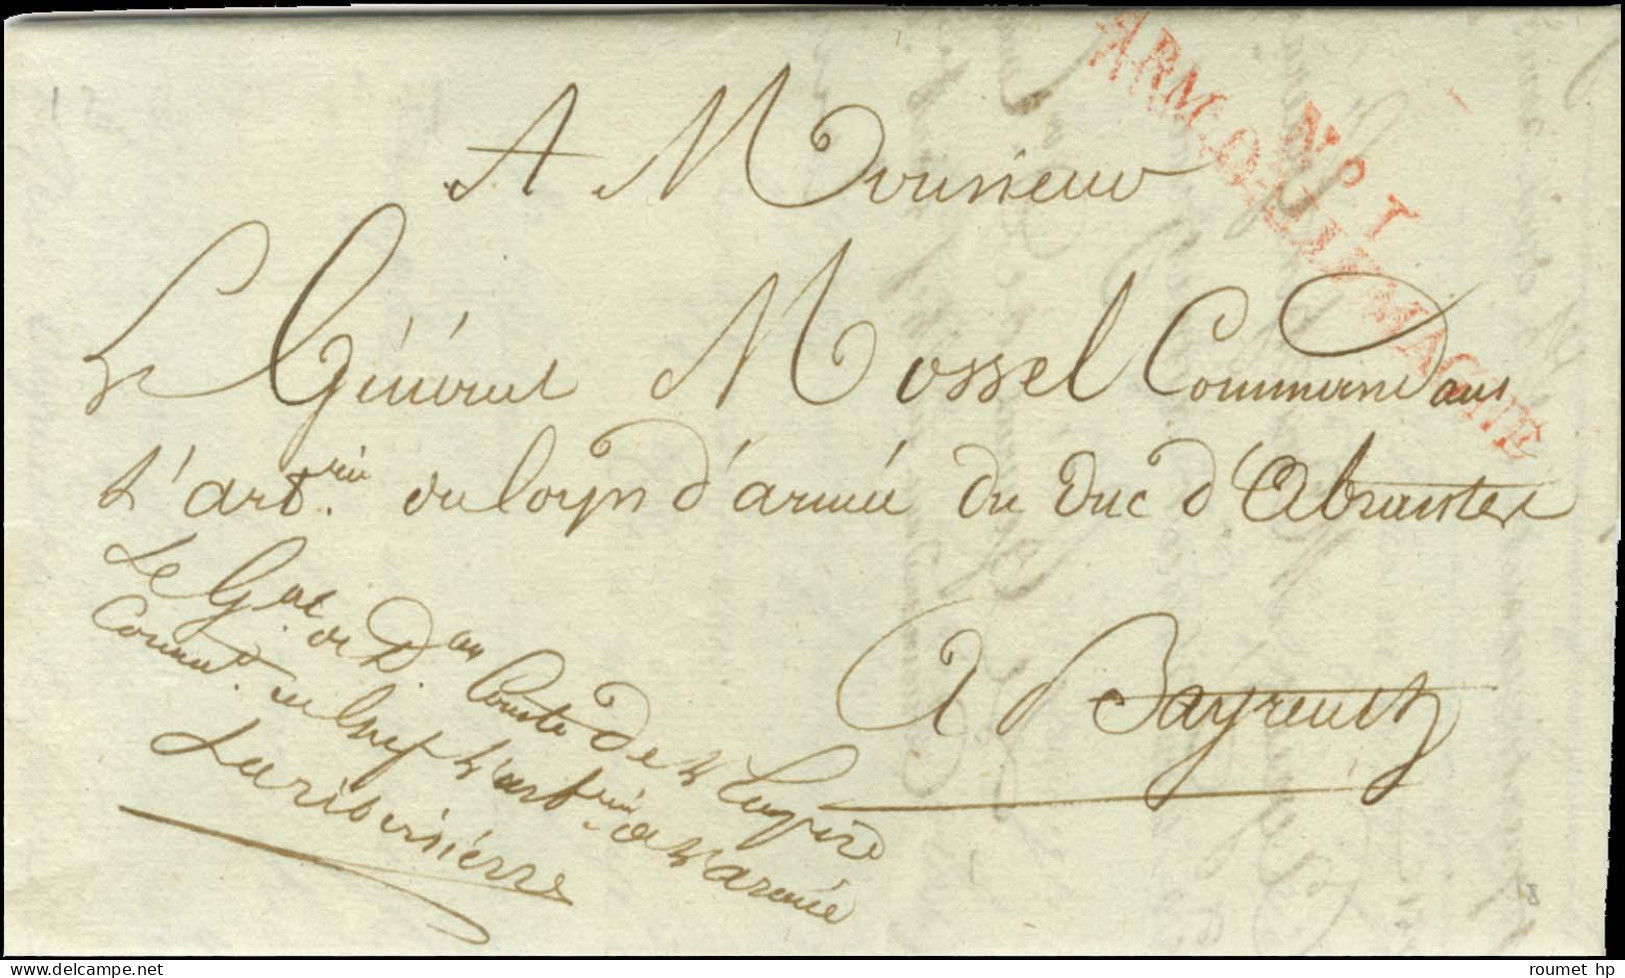 N° 1
ARM. D'ALLEMAGNE
A Monsieur
Le Général Mossel Commandant
L'art.rie du Corps d'armée du Duc d'Abrantes
A Bayreuth
Le G.al de D.on Comte de L'Empire
Comm.t en Chef L'art.rie de L'armée
Lariboisière
18
roumet hp